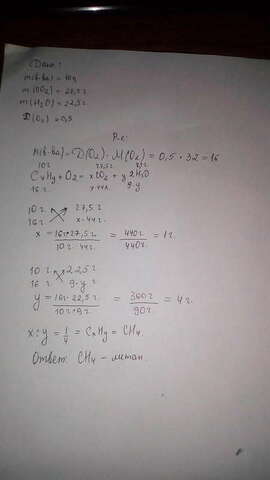 Дано:
m(в-ва) = 10г
m(CO₂) = 27,5 г.
m(H₂O) = 22,5 г.
D(O₂) = 0,5
Р-е:
M(в-ва) = D(O₂) · M(O₂) = 0,5 · 32 = 16
10 г. 27,5 г. 22,5 г.
CxHy + O₂ = xCO₂ + y/2 H₂O
16 г. x·44г. 9·y
10 г. 27,5 г.
16 г. x·44г.
x = 16г·27,5г / 10г·44г. = 440г / 440г. = 1г.
10 г. 22,5 г
16 г. 9·y г
y = 16г·22,5г. / 10г·9г. = 360г / 90г. = 4г.
x:y = 1/4 = CxHy = CH₄.
Ответ: CH₄ – метан.